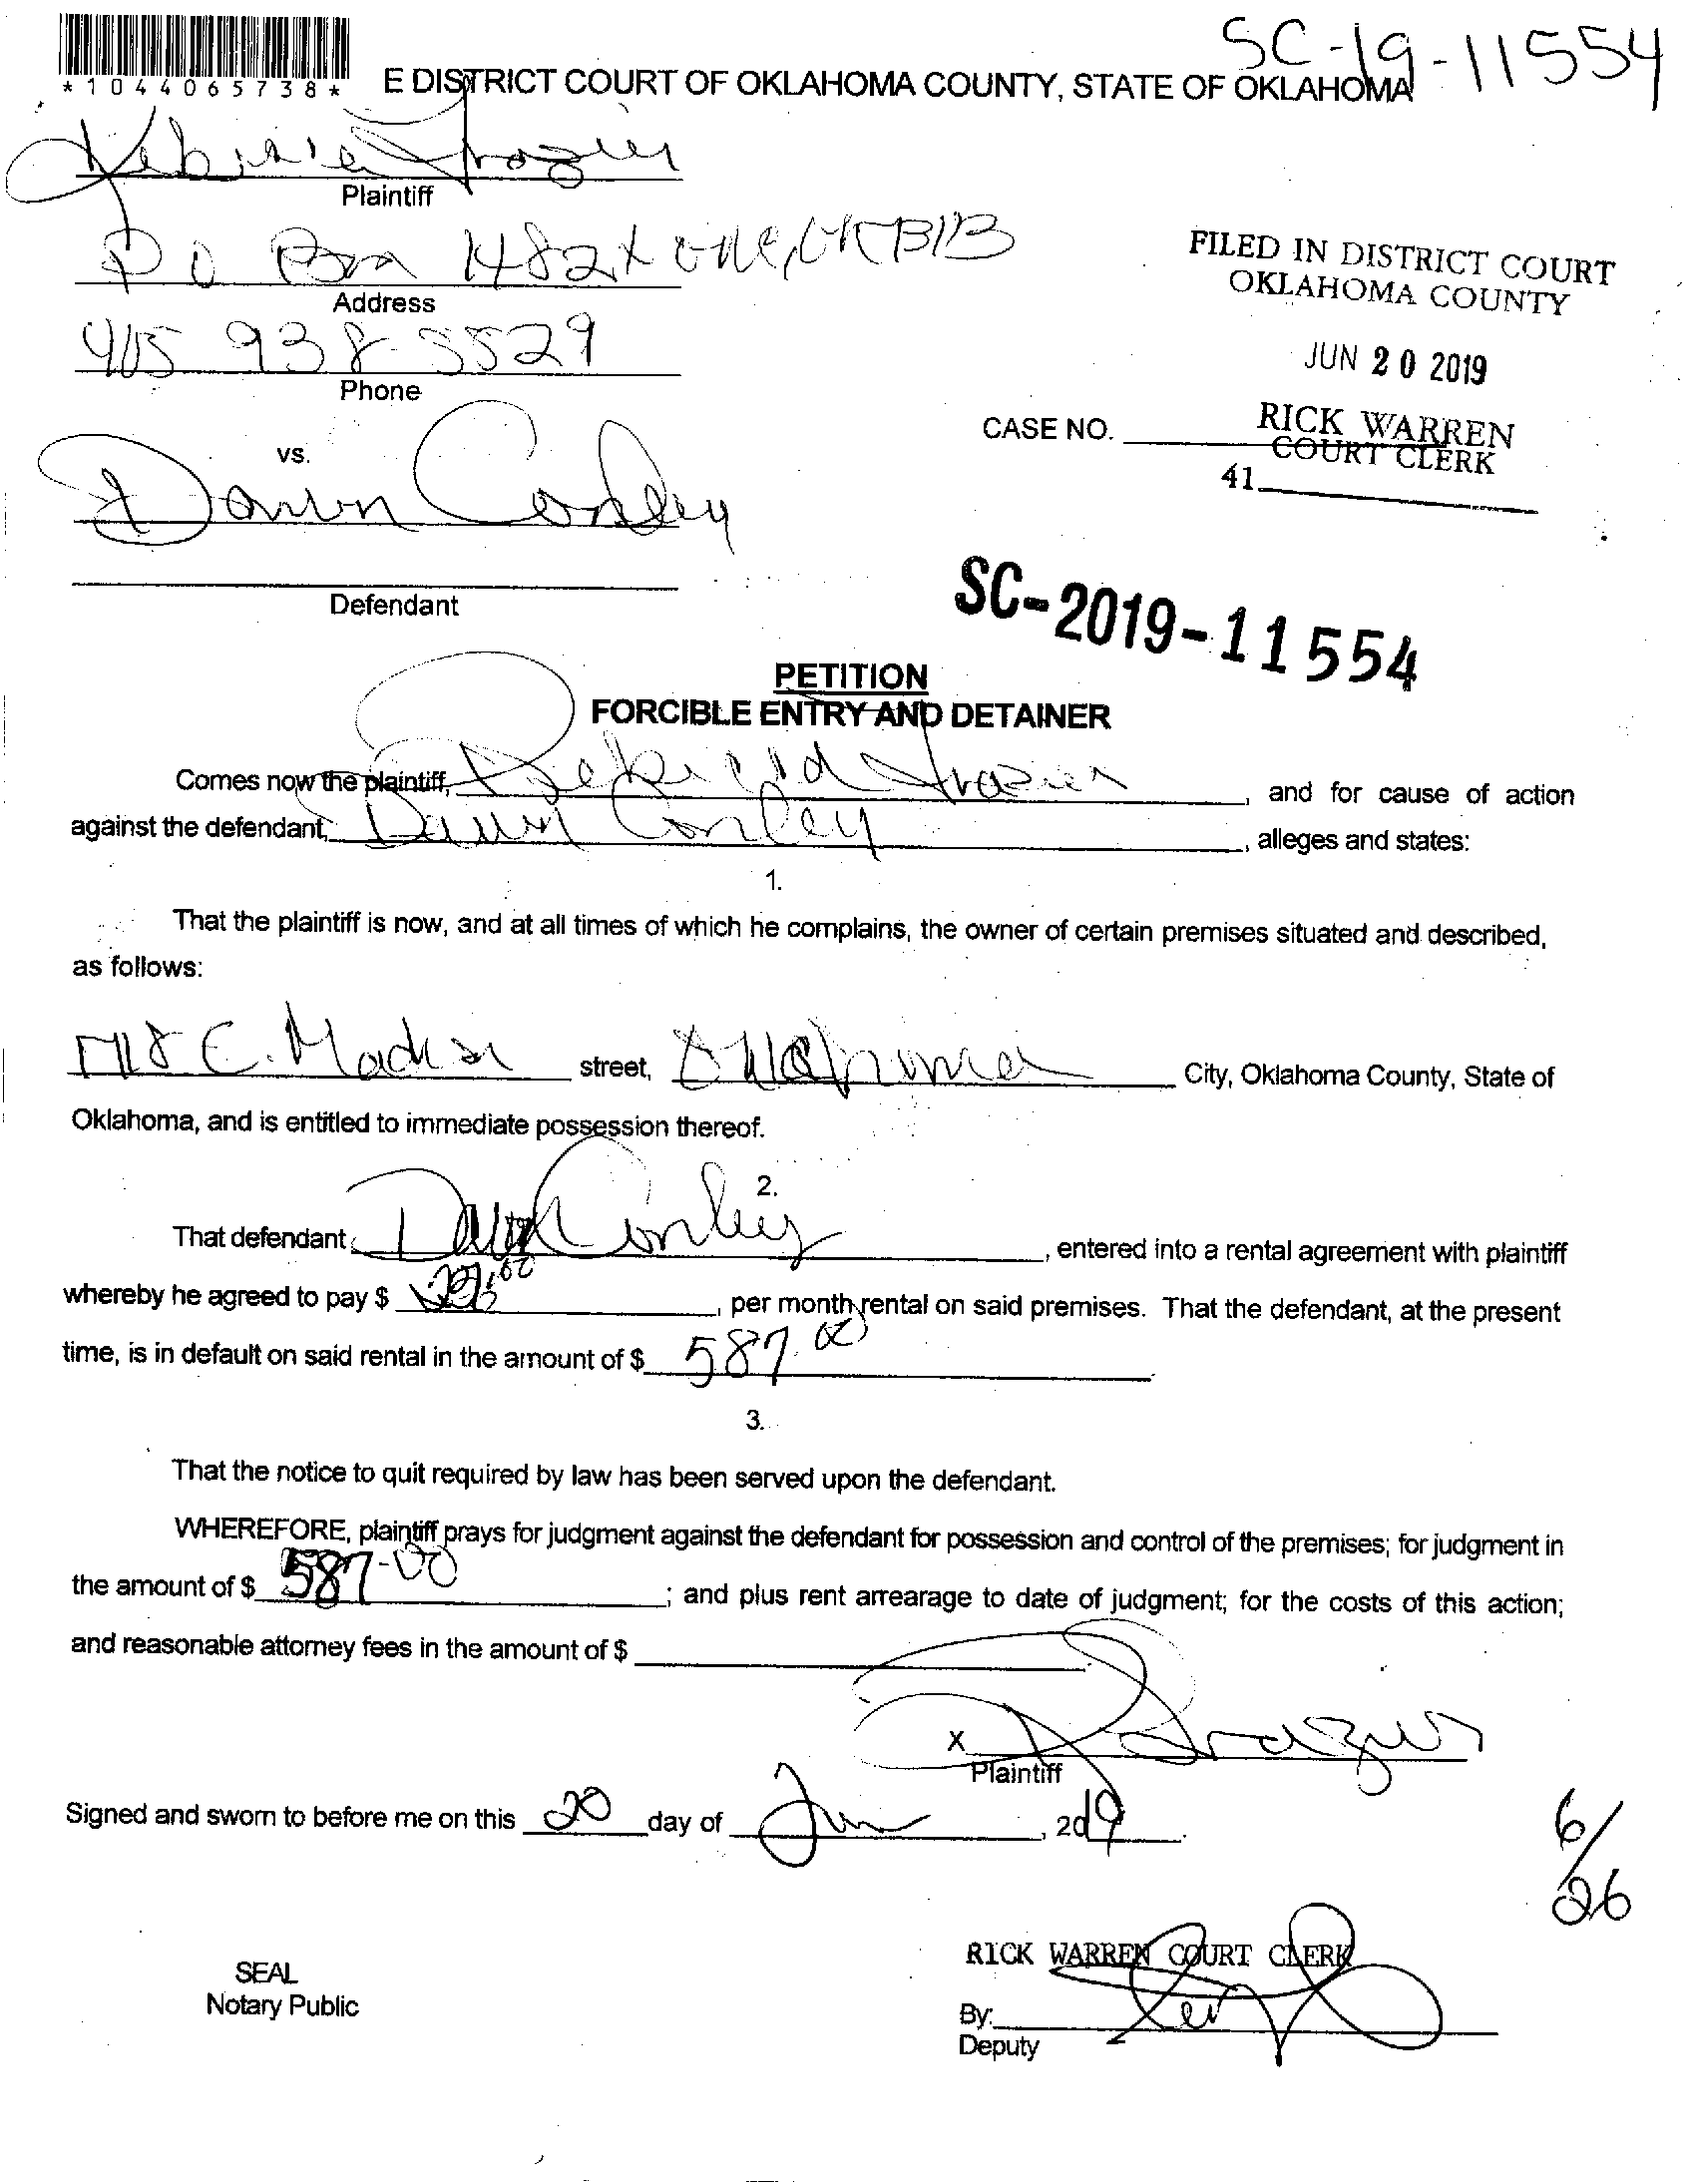 SC-19-11554
*1044065738*
E DISTRICT COURT OF OKLAHOMA COUNTY, STATE OF OKLAHOMA
Frazier
Plaintiff
PO Box 1482
Address
405 938-5529
Phone
FILED IN DISTRICT COURT
OKLAHOMA COUNTY
JUN 20 2019
RICK WARREN
COURT CLERK
41
CASE NO.
vs.
Dawn Conley
Defendant
SC-2019-11554
PETITION
FORCIBLE ENTRY AND DETAINER
Comes now the plaintiff, Frazier, and for cause of action
against the defendant, Dawn Conley, alleges and states:
1.
That the plaintiff is now, and at all times of which he complains, the owner of certain premises situated and described,
as follows:
E. Madison street, Oklahoma City, Oklahoma County, State of
Oklahoma, and is entitled to immediate possession thereof.
2.
That defendant, Dawn Conley, entered into a rental agreement with plaintiff
whereby he agreed to pay $, per month rental on said premises. That the defendant, at the present
time, is in default on said rental in the amount of $ 587.00
3.
That the notice to quit required by law has been served upon the defendant.
WHEREFORE, plaintiff prays for judgment against the defendant for possession and control of the premises; for judgment in
the amount of $ 587-00; and plus rent arrearage to date of judgment; for the costs of this action;
and reasonable attorney fees in the amount of $
X Frazier
Plaintiff
Signed and sworn to before me on this 20 day of Jun, 2019.
6/26
SEAL
Notary Public
RICK WARREN COURT CLERK
By:
Deputy